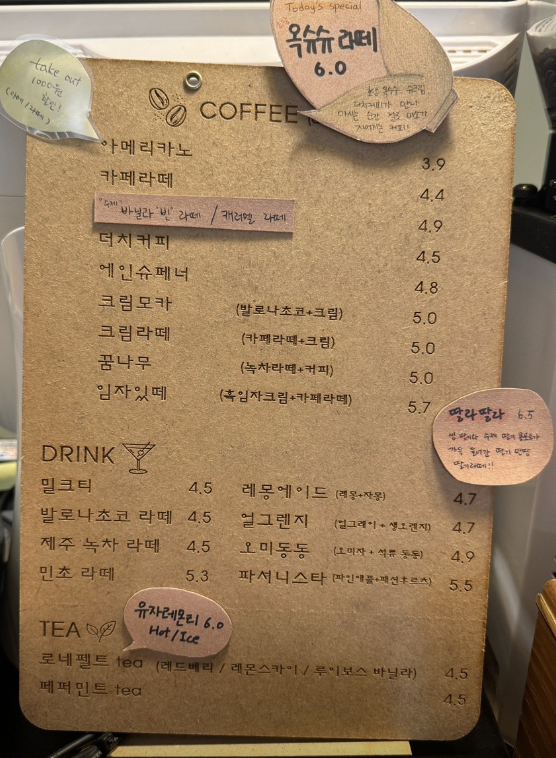 take out
1000원
할인!
Today's special
옥수수 라떼
6.0
COFFEE
아메리카노 3.9
카페라떼 4.4
"수제" 바닐라'빈' 라떼 / 캐러멜 라떼 4.9
더치커피 4.5
에인슈페너 4.8
크림모카 (발로나초코+크림) 5.0
크림라떼 (카페라떼+크림) 5.0
꿈나무 (녹차라떼+커피) 5.0
임자있떼 (흑임자크림+카페라떼) 5.7
딸라딸라 6.5
DRINK
밀크티 4.5
발로나초코 라떼 4.5
제주 녹차 라떼 4.5
민초 라떼 5.3
레몽에이드 (레몬+자몽) 4.7
얼그렌지 (얼그레이 + 생오렌지) 4.7
오미동동 (오미자 + 석류 동동) 4.9
파셔니스타 (파인애플+패션후르츠) 5.5
TEA
유자레몬티 6.0
Hot/Ice
로네펠트 tea (레드베리 / 레몬스카이 / 루이보스 바닐라) 4.5
페퍼민트 tea 4.5